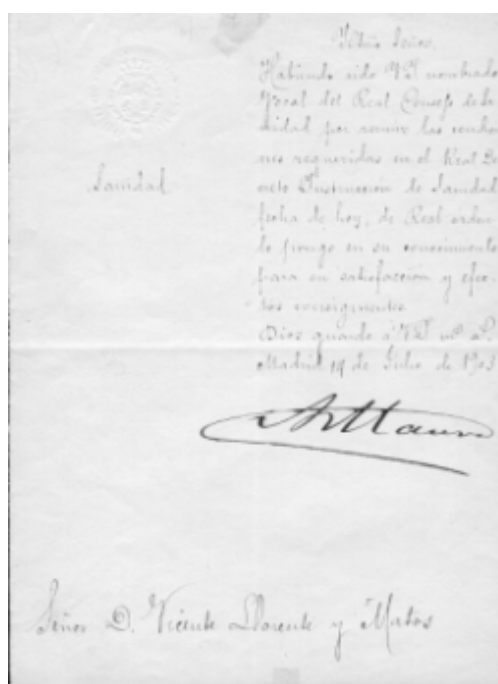 Iltmo Señor.
Habiendo sido V.I. nombrado
Vocal del Real Consejo de Sa
nidad por reunir las condicio
nes requeridas en el Real De
creto Instrucción de Sanidad
fecha de hoy, de Real orden
lo pongo en su conocimiento
para su satisfacción y efec-
tos consiguientes.
Dios guarde á V.I. ms. as.
Madrid 14 de Julio de 1903
Sanidad
AMaura
Señor D. Vicente Llorente y Matos